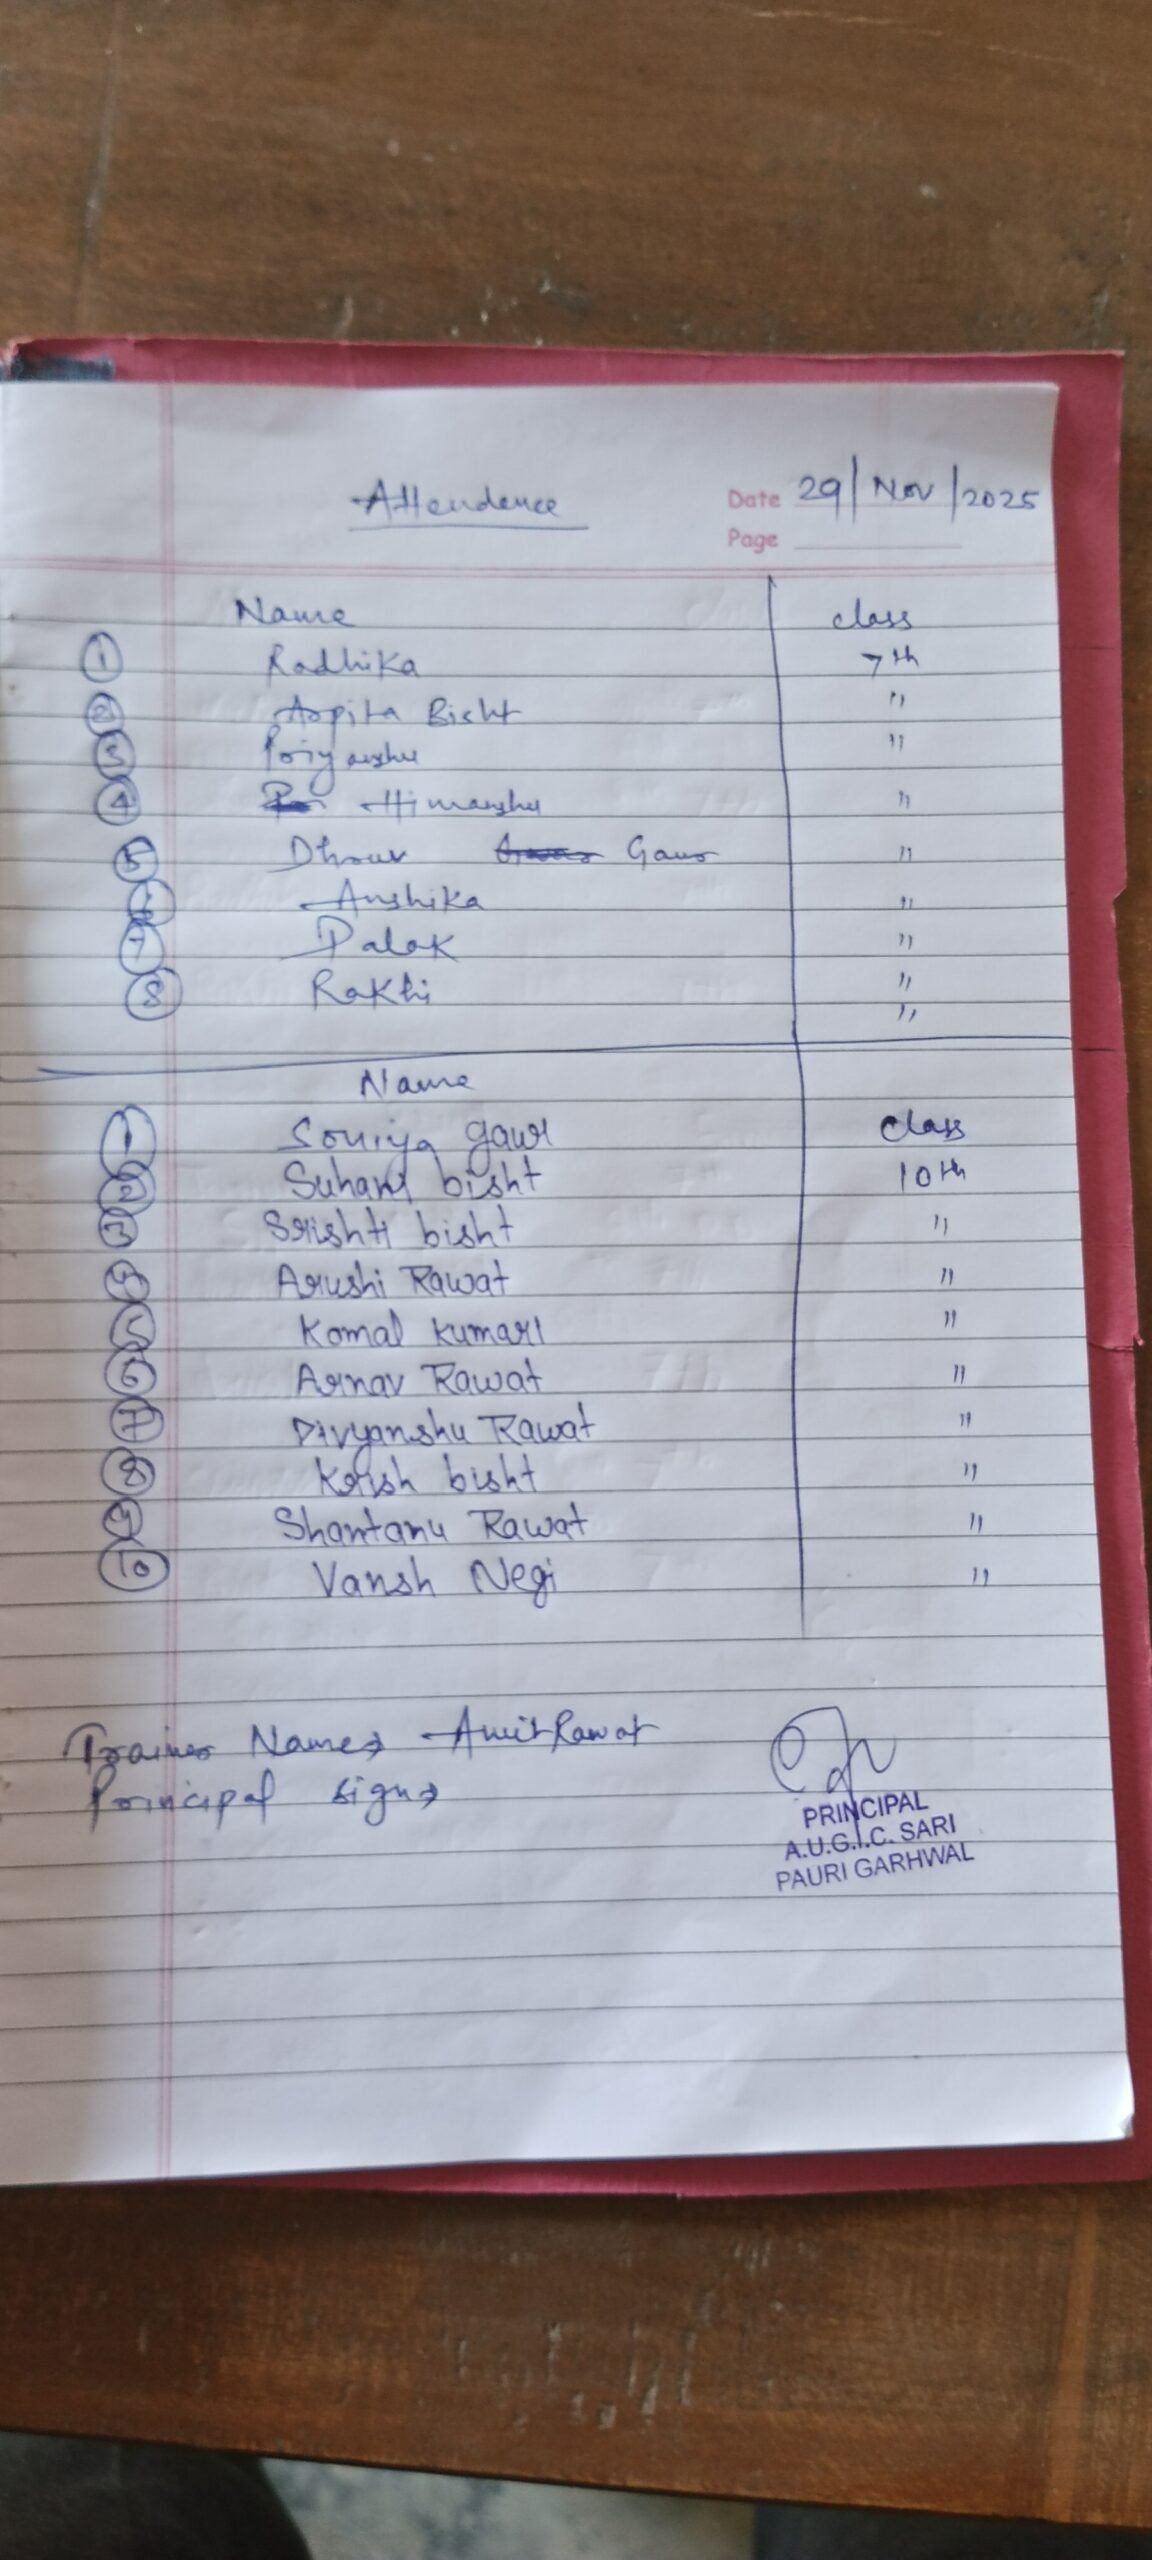 Attendence
Date 29/Nov/2025
Page
Name class
1 Radhika 7th
2 Arpita Bisht "
3 Priyanshu "
4 Himanshu "
5 Dhruv Gaur "
6 Anshika "
7 Palak "
8 Rakhi "
"
Name
1 Soniya gaur class
2 Suhani bisht 10th
3 Srishti bisht "
4 Arushi Rawat "
5 Komal kumari "
6 Arnav Rawat "
7 Divyanshu Rawat "
8 Krish bisht "
9 Shantanu Rawat "
10 Vansh Negi "
Trainer Name → Amit Rawat
Principal sign →
PRINCIPAL
A.U.G.I.C. SARI
PAURI GARHWAL